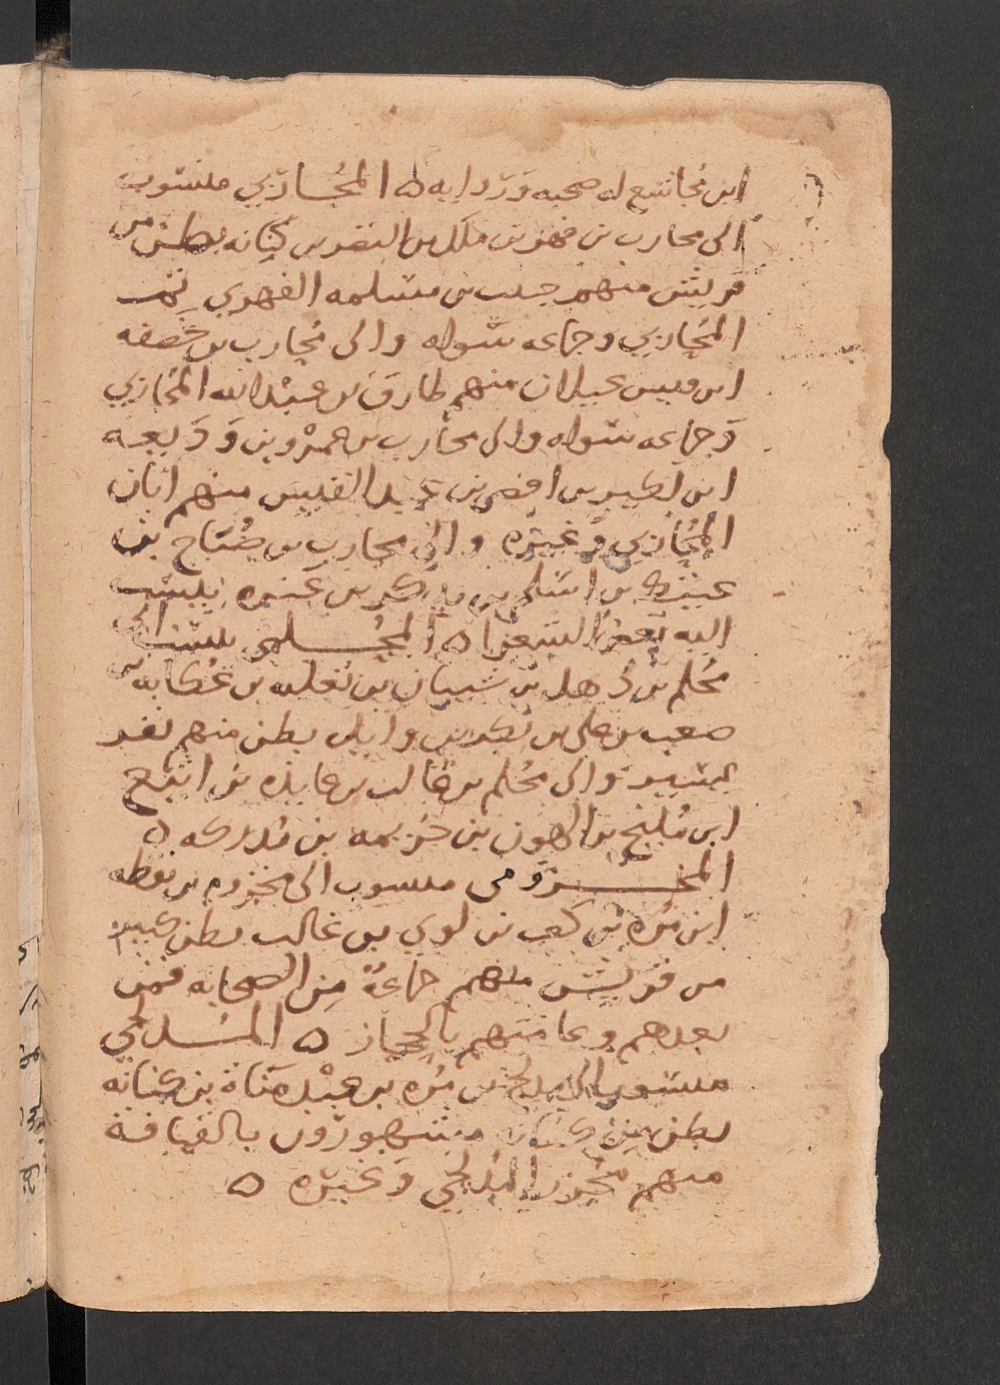 ابن مجاشع له صحبه ورواية ه المحاربي منسوب
الى محارب بن فهر بن ملك بن النضر بن كنانه بطن من
قريش منهم حبيب بن مسلمه الفهري
المحاربي وجماعه سواه والى محارب بن خصفه
ابن قيس عيلان منهم طارق بن عبد الله المحاربي
وجماعه سواه والى محارب بن عمرو بن وديعه
ابن لكيز بن افصى بن عبد القيس منهم ابان
المحاربي وغيره والى محارب بن صباح بن
عتيك بن اسلم بن يذكر بن عنزه ينسب
اليه بعض الشعرا ه المحلمي ينسب الى
محلم بن ذهل بن شيبان بن ثعلبه بن عكابه بن
صعب بن علي بن بكر بن وايل بطن منهم نفر
يسير والى محلم بن غالب بن عايذه بن ايثع
ابن مليح بن الهون بن خزيمه بن مدركه ه
المخزومي منسوب الى مخزوم بن يقظه
ابن مره بن كعب بن لوي بن غالب بطن كبير
من قريش منهم جماعة من الصحابه فمن
بعدهم وعامتهم بالحجاز ه المدلجي
منسوب الى مدلج بن مره بن عبد مناة بن كنانة
بطن من كنانه مشهورون بالقيافة
منهم مجزز المدلجي وغيره ه